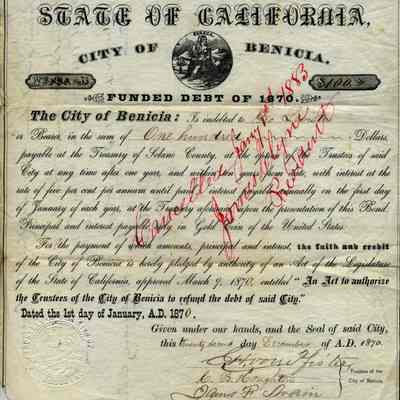 STATE OF CALIFORNIA,
CITY OF BENICIA.
$100.
FUNDED DEBT OF 1870.
The City of Benicia: Is indebted to
or Bearer, in the sum of One hundred Dollars,
payable at the Treasury of Solano County, at the option of the Trustees of said
City at any time after one year, and within years from date, with interest at the
rate of five per cent per annum until paid, interest payable annually on the first day
of January of each year, at the Treasury aforesaid upon the presentation of this Bond.
Principal and interest payable only in Gold Coin of the United States.
For the payment of above amounts, principal and interest, the faith and credit
of the City of Benicia is hereby pledged by authority of an Act of the Legislature
of the State of California, approved March 9, 1870, entitled "An Act to authorize
the Trustees of the City of Benicia to refund the debt of said City."
Dated the 1st day of January, A.D. 1870.
Given under our hands, and the Seal of said City,
this day December of A.D. 1870.
Trustees of the
City of Benicia.
Cancelled 1883